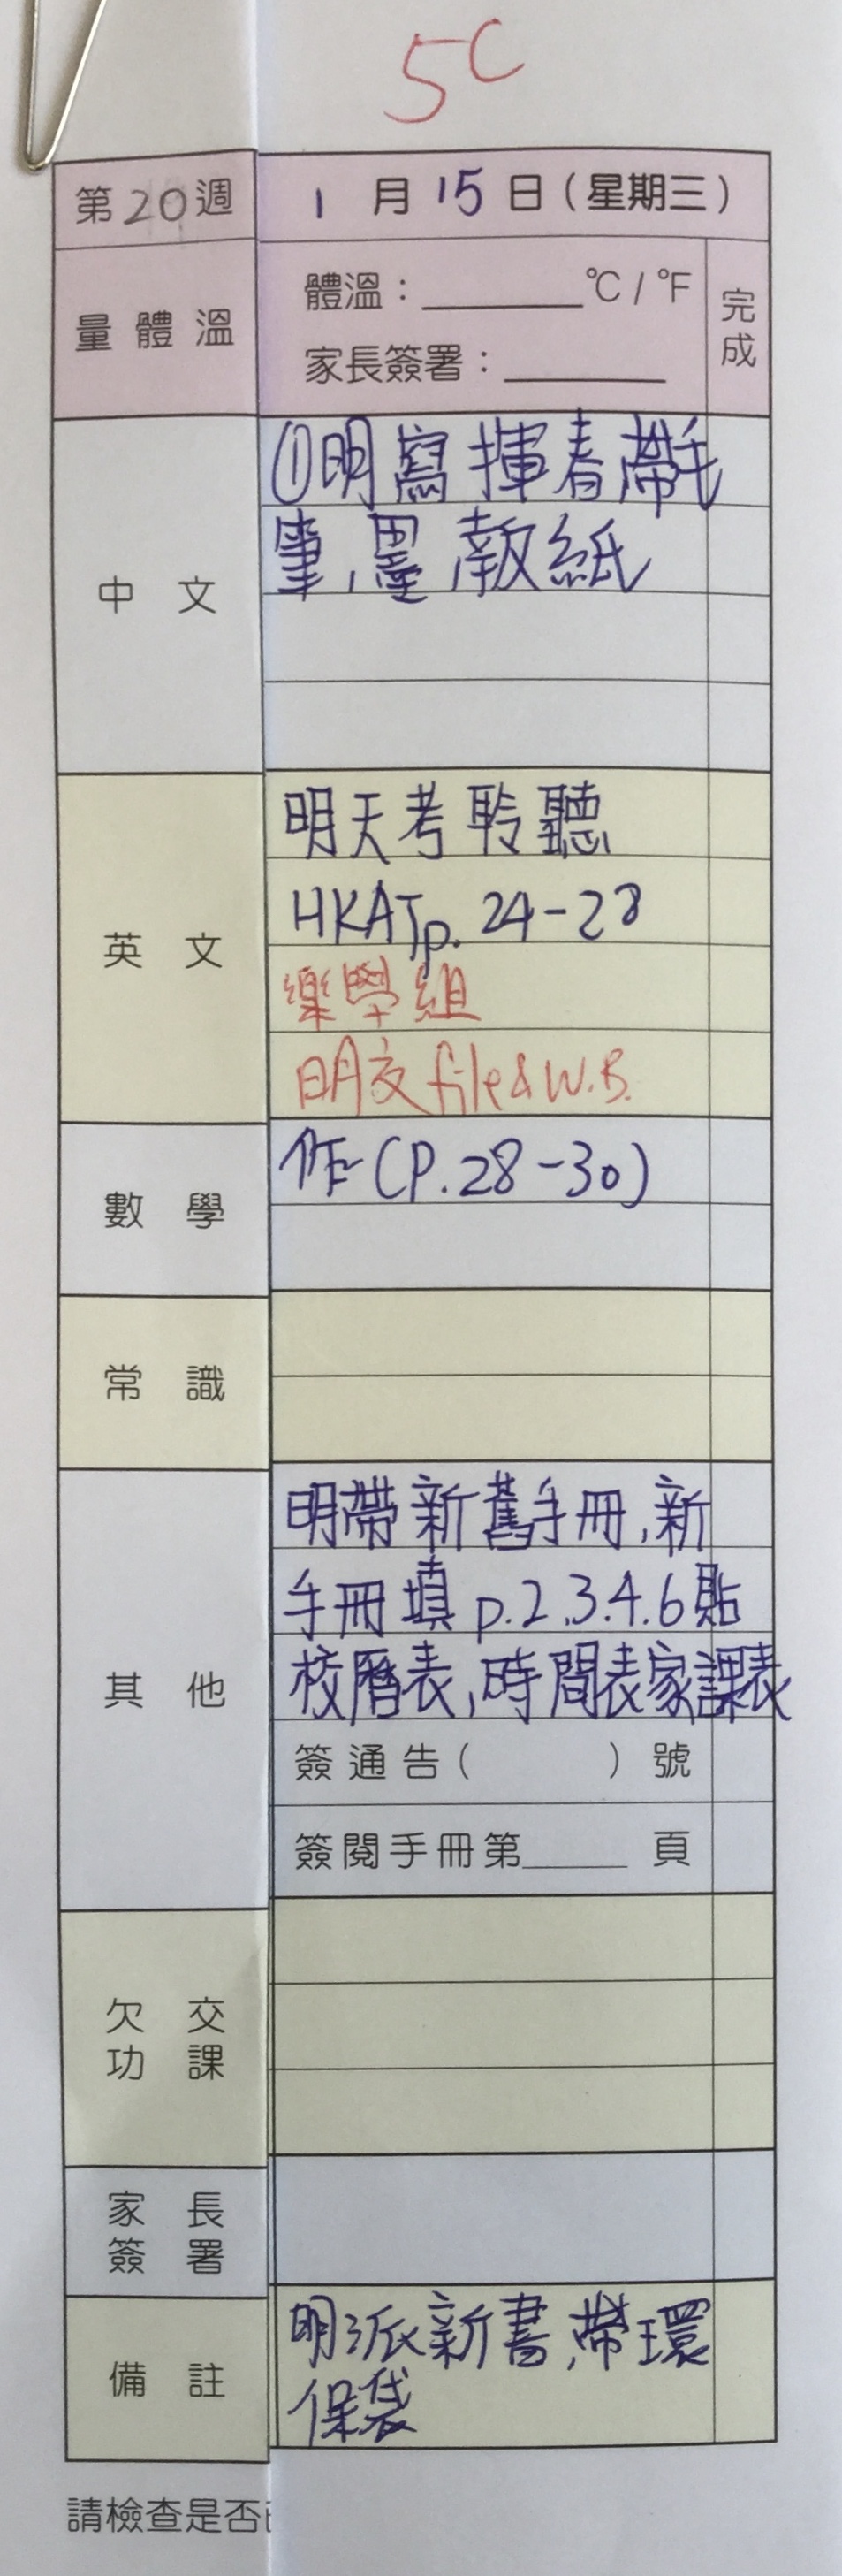 5C
第20週 1月15日(星期三)
量體溫 體溫：______°C / °F 完成
家長簽署：______
中文 ①明寫揮春帶毛
筆,墨,報紙
英文 明天考聆聽
HKAT p. 24-28
樂學組
明交 file & W.B.
數學 作(P.28-30)
常識
其他 明帶新舊手冊,新
手冊填 p.2.3.4.6貼
校曆表,時間表家課表
簽通告( )號
簽閱手冊第_____頁
欠交功課
家長簽署
備註 明派新書,帶環
保袋
請檢查是否